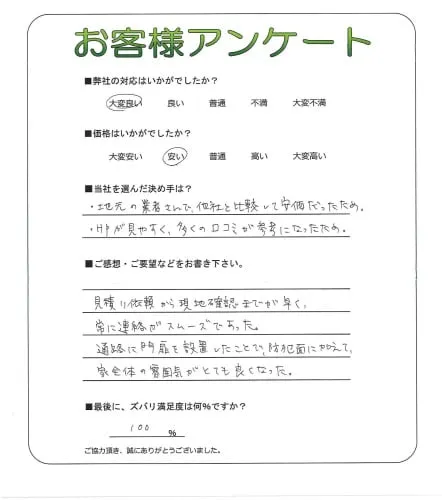 お客様アンケート
■弊社の対応はいかがでしたか？
大変良い 良い 普通 不満 大変不満
■価格はいかがでしたか？
大変安い 安い 普通 高い 大変高い
■当社を選んだ決め手は？
・地元の業者さんで、他社と比較して安価だったため。
・HPが見やすく、多くの口コミが参考になったため。
■ご感想・ご要望などをお書き下さい。
見積り依頼から現地確認までが早く、
常に連絡がスムーズであった。
通路に門扉を設置したことで、防犯面に加えて、
家全体の雰囲気がとても良くなった。
■最後に、ズバリ満足度は何%ですか？
100 %
ご協力頂き、誠にありがとうございました。